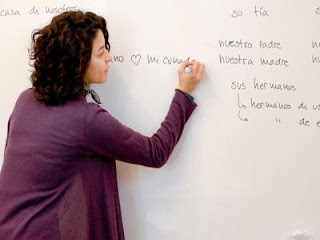 casa de nosotros
no ♡ mi cuñado
su tía
nuestro padre
nuestra madre
sus hermanos
↳ hermanos de us
↳ " de e